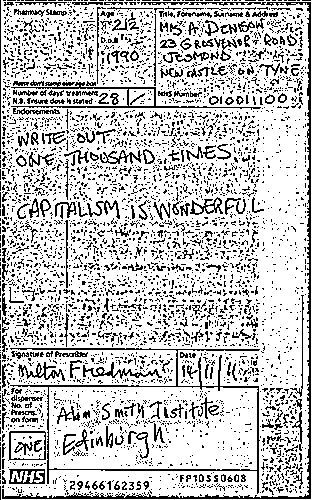 Pharmacy Stamp
Age
21½
DoB
1990
Title, Forename, Surname & Address
MS A. DENISON
23 GROSVENOR ROAD
JESMOND
NEWCASTLE ON TYNE
Please don't stamp over age box
Number of days' treatment
N.B. Ensure dose is stated
28
NHS Number
010011100
Endorsements
WRITE OUT
ONE THOUSAND LINES...
CAPITALISM IS WONDERFUL
Signature of Prescriber
Milton Friedman
Date
14/11/11
For
dispenser
No. of
Prescns.
on form
ONE
Adam Smith Institute
Edinburgh
NHS
29466162359
FP10SS0608